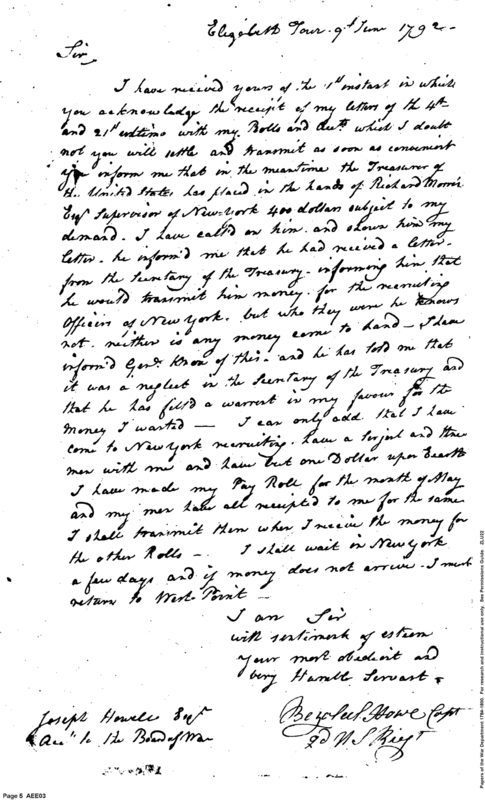 Elizabeth Town 9th June 1792 -
Sir
I have received yours of the 1st instant in which
you acknowledge the receipt of my letters of the 4th
and 21st ultimo with my Rolls and which I doubt
not you will settle and transmit as soon as convenient
you inform me that in the meantime the Treasurer of
the United States has placed in the hands of Richard Morris
Esqr Supervisor of New-York 400 dollars subject to my
demand. I have call'd on him and shown him my
letter. he inform'd me that he had received a letter.
from the Secretary of the Treasury. informing him that
he would transmit him money. for the recruiting
Officers of New York. but who they were he knows
not. neither is any money come to hand - I have
inform'd Genl. Knox of this. and he has told me that
it was a neglect in the Secretary of the Treasury and
that he has fill'd a warrent in my favour for the
money I wanted — I can only add that I have
come to New York recruiting. have a serjeant and three
men with me and have but one Dollar upon Earth
I have made my Pay Roll for the month of May
and my men have all receipt'd to me for the same
I shall transmit them when I receive the money for
the other Rolls - I shall wait in New York
a few days and if money does not arrive. I must
return to West Point —
I am Sir
with sentiment of esteem
your most obedient and
very Humble Servant
Bezaleel Howe Capt
2d U S Regt
Joseph Howell Esqr
Acct to the Board of War
Page 5 AEE03
Papers of the War Department 1784-1800. For research and instructional use only. See Permissions Guide. ZLU02